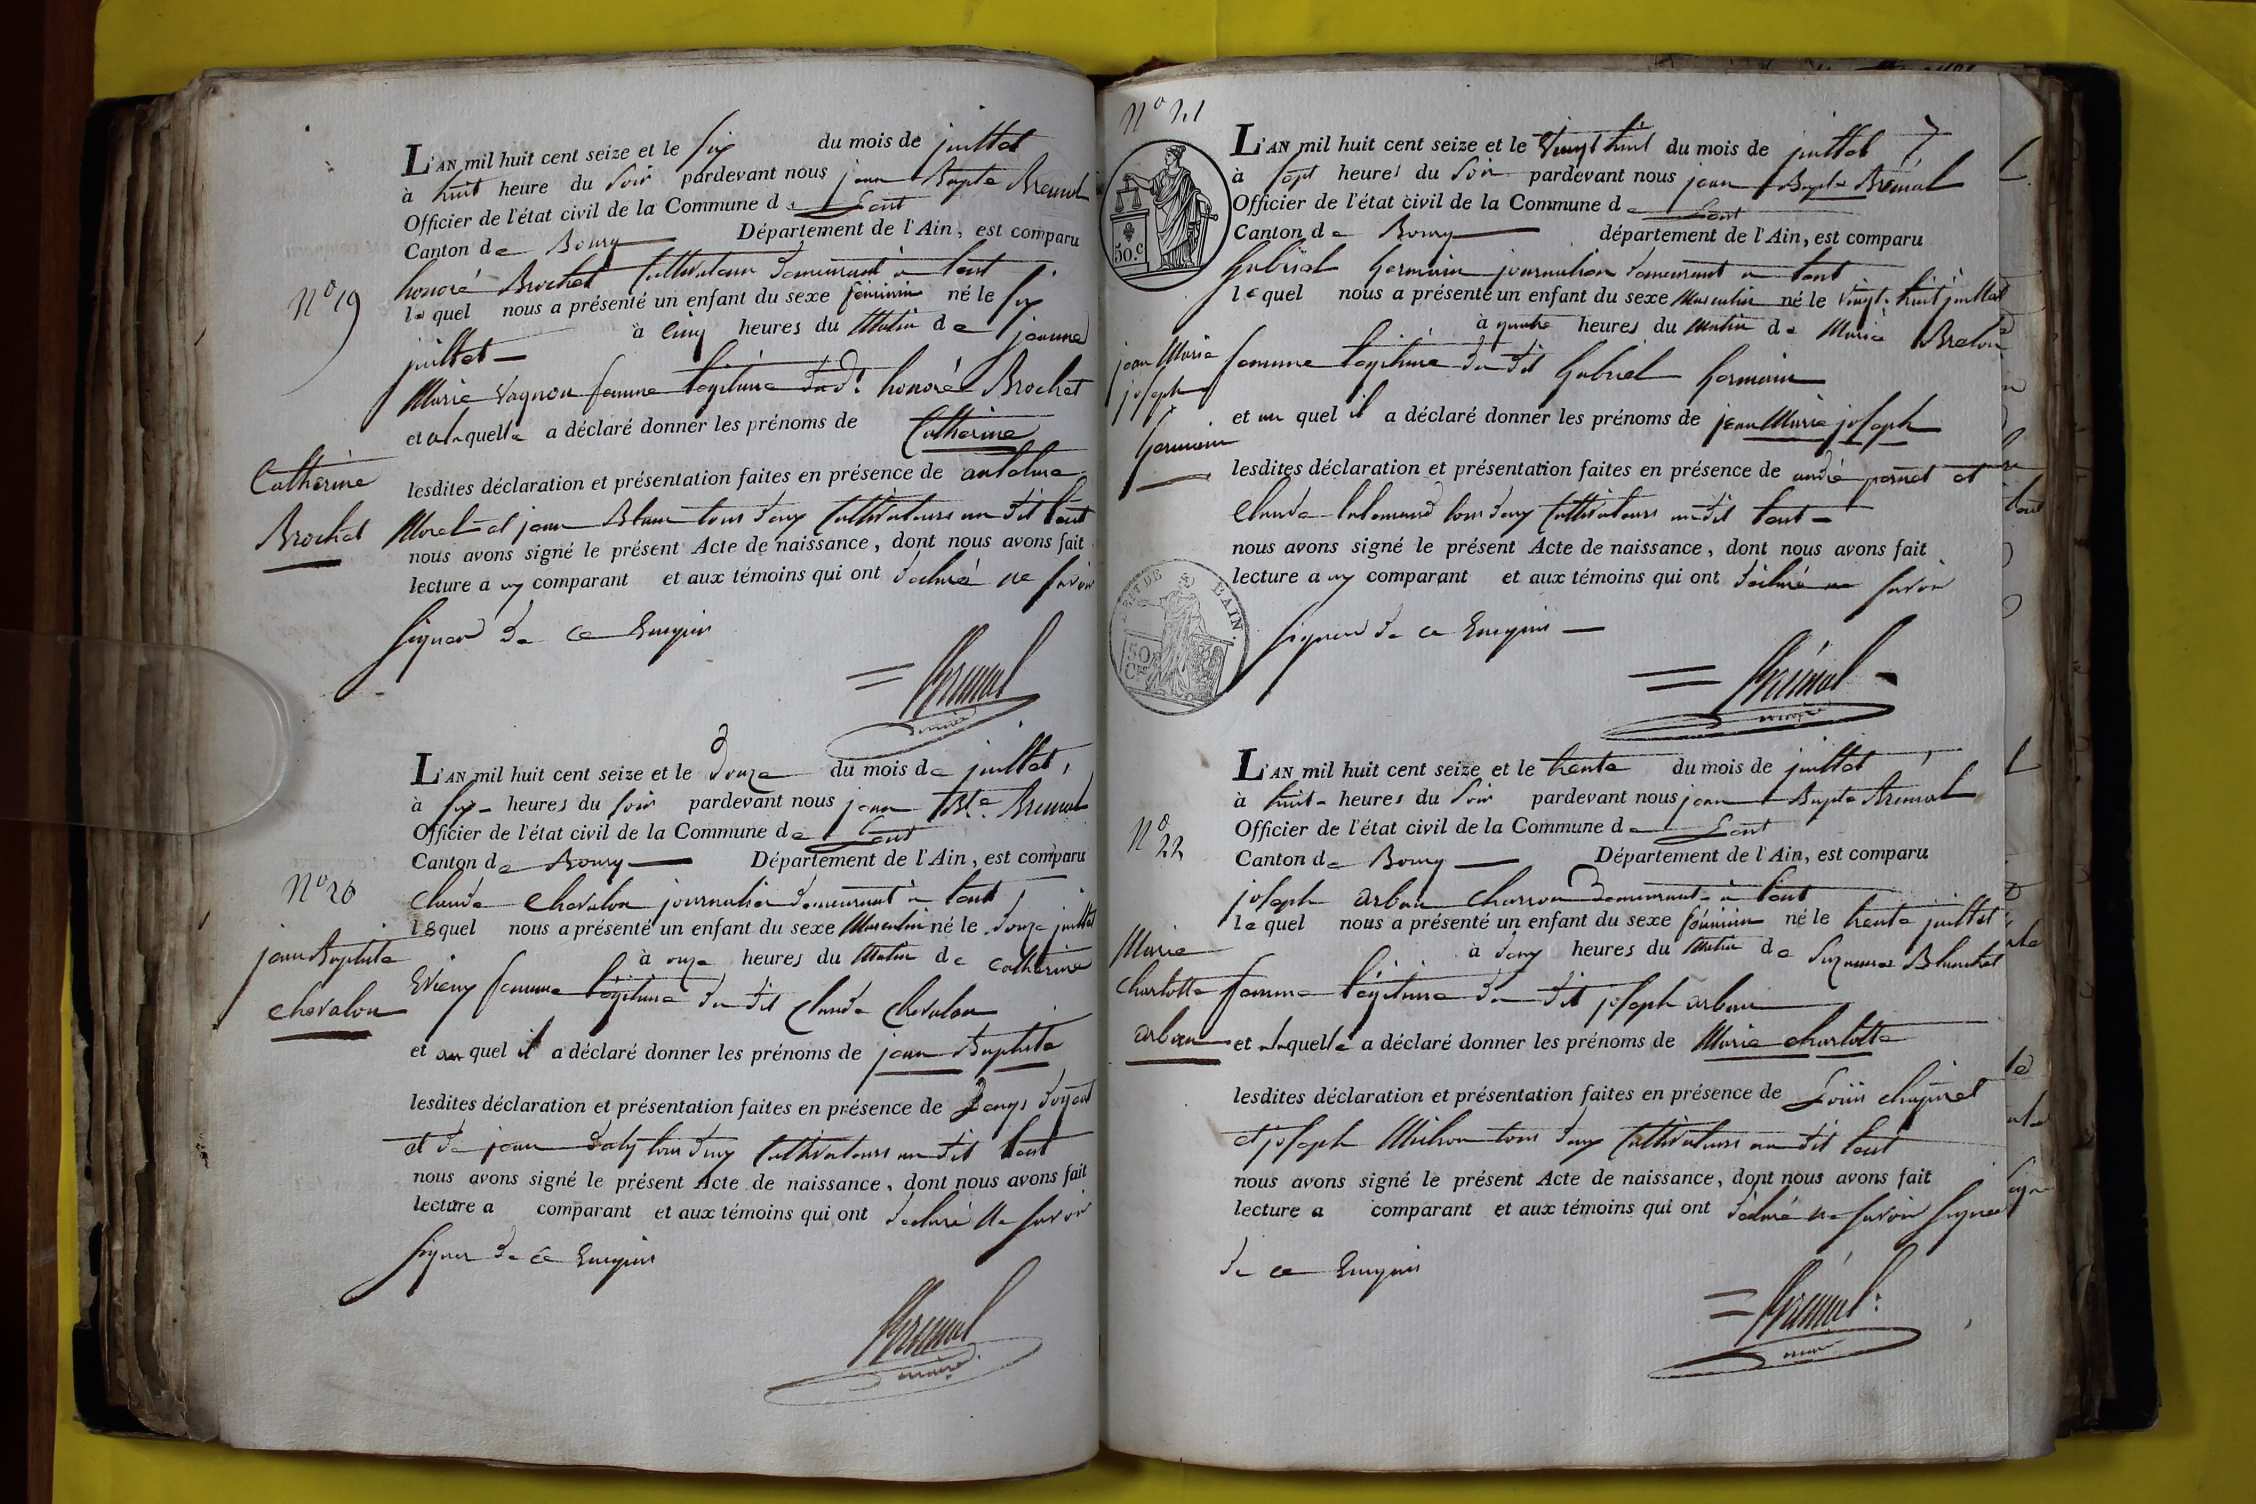 L'AN mil huit cent seize et le six du mois de juillet
à huit heure du soir pardevant nous jean Bapte Brémal
Officier de l'état civil de la Commune de Lent
Canton de Bourg Département de l'Ain, est comparu
honoré Brochet Cultivateur demeurant à Lent
lequel nous a présenté un enfant du sexe féminin né le six
juillet à cinq heures du Matin de jeanne
N° 19
Marie Vagnon femme légitime dudt honoré Brochet
et a laquelle a déclaré donner les prénoms de Catherine
Catherine
Brochet
lesdites déclaration et présentation faites en présence de antoine
Morel et jean Blanc tous deux Cultivateurs au dit Lent
nous avons signé le présent Acte de naissance, dont nous avons fait
lecture a u comparant et aux témoins qui ont déclaré ne savoir
signer de ce Enquis
Brémal
maire
L'AN mil huit cent seize et le douze du mois de juillet
à six heures du soir pardevant nous jean Bte Brémal
Officier de l'état civil de la Commune de Lent
Canton de Bourg Département de l'Ain, est comparu
N° 20
Claude Chevalon journalier demeurant à Lent
lequel nous a présenté un enfant du sexe Masculin né le douze juillet
à onze heures du Matin de Catherine
femme légitime du dit Claude Chevalon
et au quel il a déclaré donner les prénoms de jean Baptiste
jean Baptiste
Chevalon
lesdites déclaration et présentation faites en présence de Denys
et de jean tous deux Cultivateurs au dit Lent
nous avons signé le présent Acte de naissance, dont nous avons fait
lecture a comparant et aux témoins qui ont déclaré ne savoir
signer de ce Enquis
Brémal
maire
N° 21
L'AN mil huit cent seize et le vingt huit du mois de juillet
à sept heures du soir pardevant nous jean Bapte Brémal
Officier de l'état civil de la Commune de Lent
Canton de Bourg département de l'Ain, est comparu
50.c
Gabriel Germain journalier demeurant à Lent
lequel nous a présenté un enfant du sexe Masculin né le vingt-huit juillet
à quatre heures du matin de Marie Breton
femme légitime du dit Gabriel Germain
et au quel il a déclaré donner les prénoms de jean Marie joseph
jean Marie
joseph
Germain
lesdites déclaration et présentation faites en présence de andré pernet et
Claude Lalemand tous deux Cultivateurs au dit Lent
nous avons signé le présent Acte de naissance, dont nous avons fait
lecture a u comparant et aux témoins qui ont déclaré ne savoir
signer de ce Enquis
Brémal
maire
L'AN mil huit cent seize et le trente du mois de juillet
à huit heures du soir pardevant nous jean Bapte Brémal
Officier de l'état civil de la Commune de Lent
Canton de Bourg Département de l'Ain, est comparu
N° 22
joseph arban Charron demeurant à Lent
lequel nous a présenté un enfant du sexe féminin né le trente juillet
à deux heures du Matin de Suzanne Blanchet
femme légitime du dit joseph arban
et a laquelle a déclaré donner les prénoms de Marie Charlotte
Marie
Charlotte
arban
lesdites déclaration et présentation faites en présence de Louis
et joseph Michon tous deux Cultivateurs au dit Lent
nous avons signé le présent Acte de naissance, dont nous avons fait
lecture a comparant et aux témoins qui ont déclaré ne savoir signer
de ce Enquis
Brémal
maire